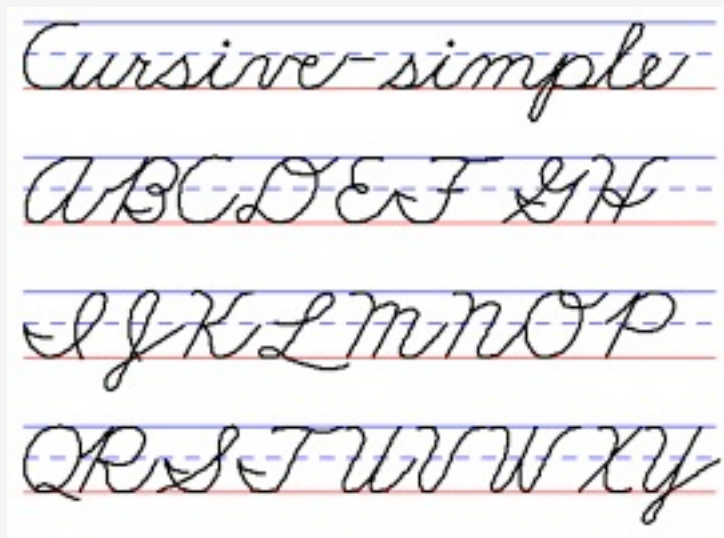 Cursive-simple
A B C D E F G H
I J K L M N O P
Q R S T U V W X Y